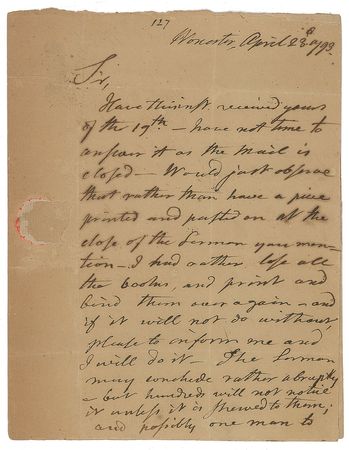 127
Worcester, April 23d 1793.
Sir,
Have this inst. received yours
of the 19th — have not time to
answer it as the Mail is
closed — Would just observe
that rather than have a piece
printed and pasted on at the
close of the Sermon you men-
tion — I had rather lose all
the books, and print and
bind them over again — and
if it will not do without,
please to inform me and
I will do it — The Sermon
may conclude rather abruptly
— but hundreds will not notice
it unless it is shewed to them;
and possibly one man to